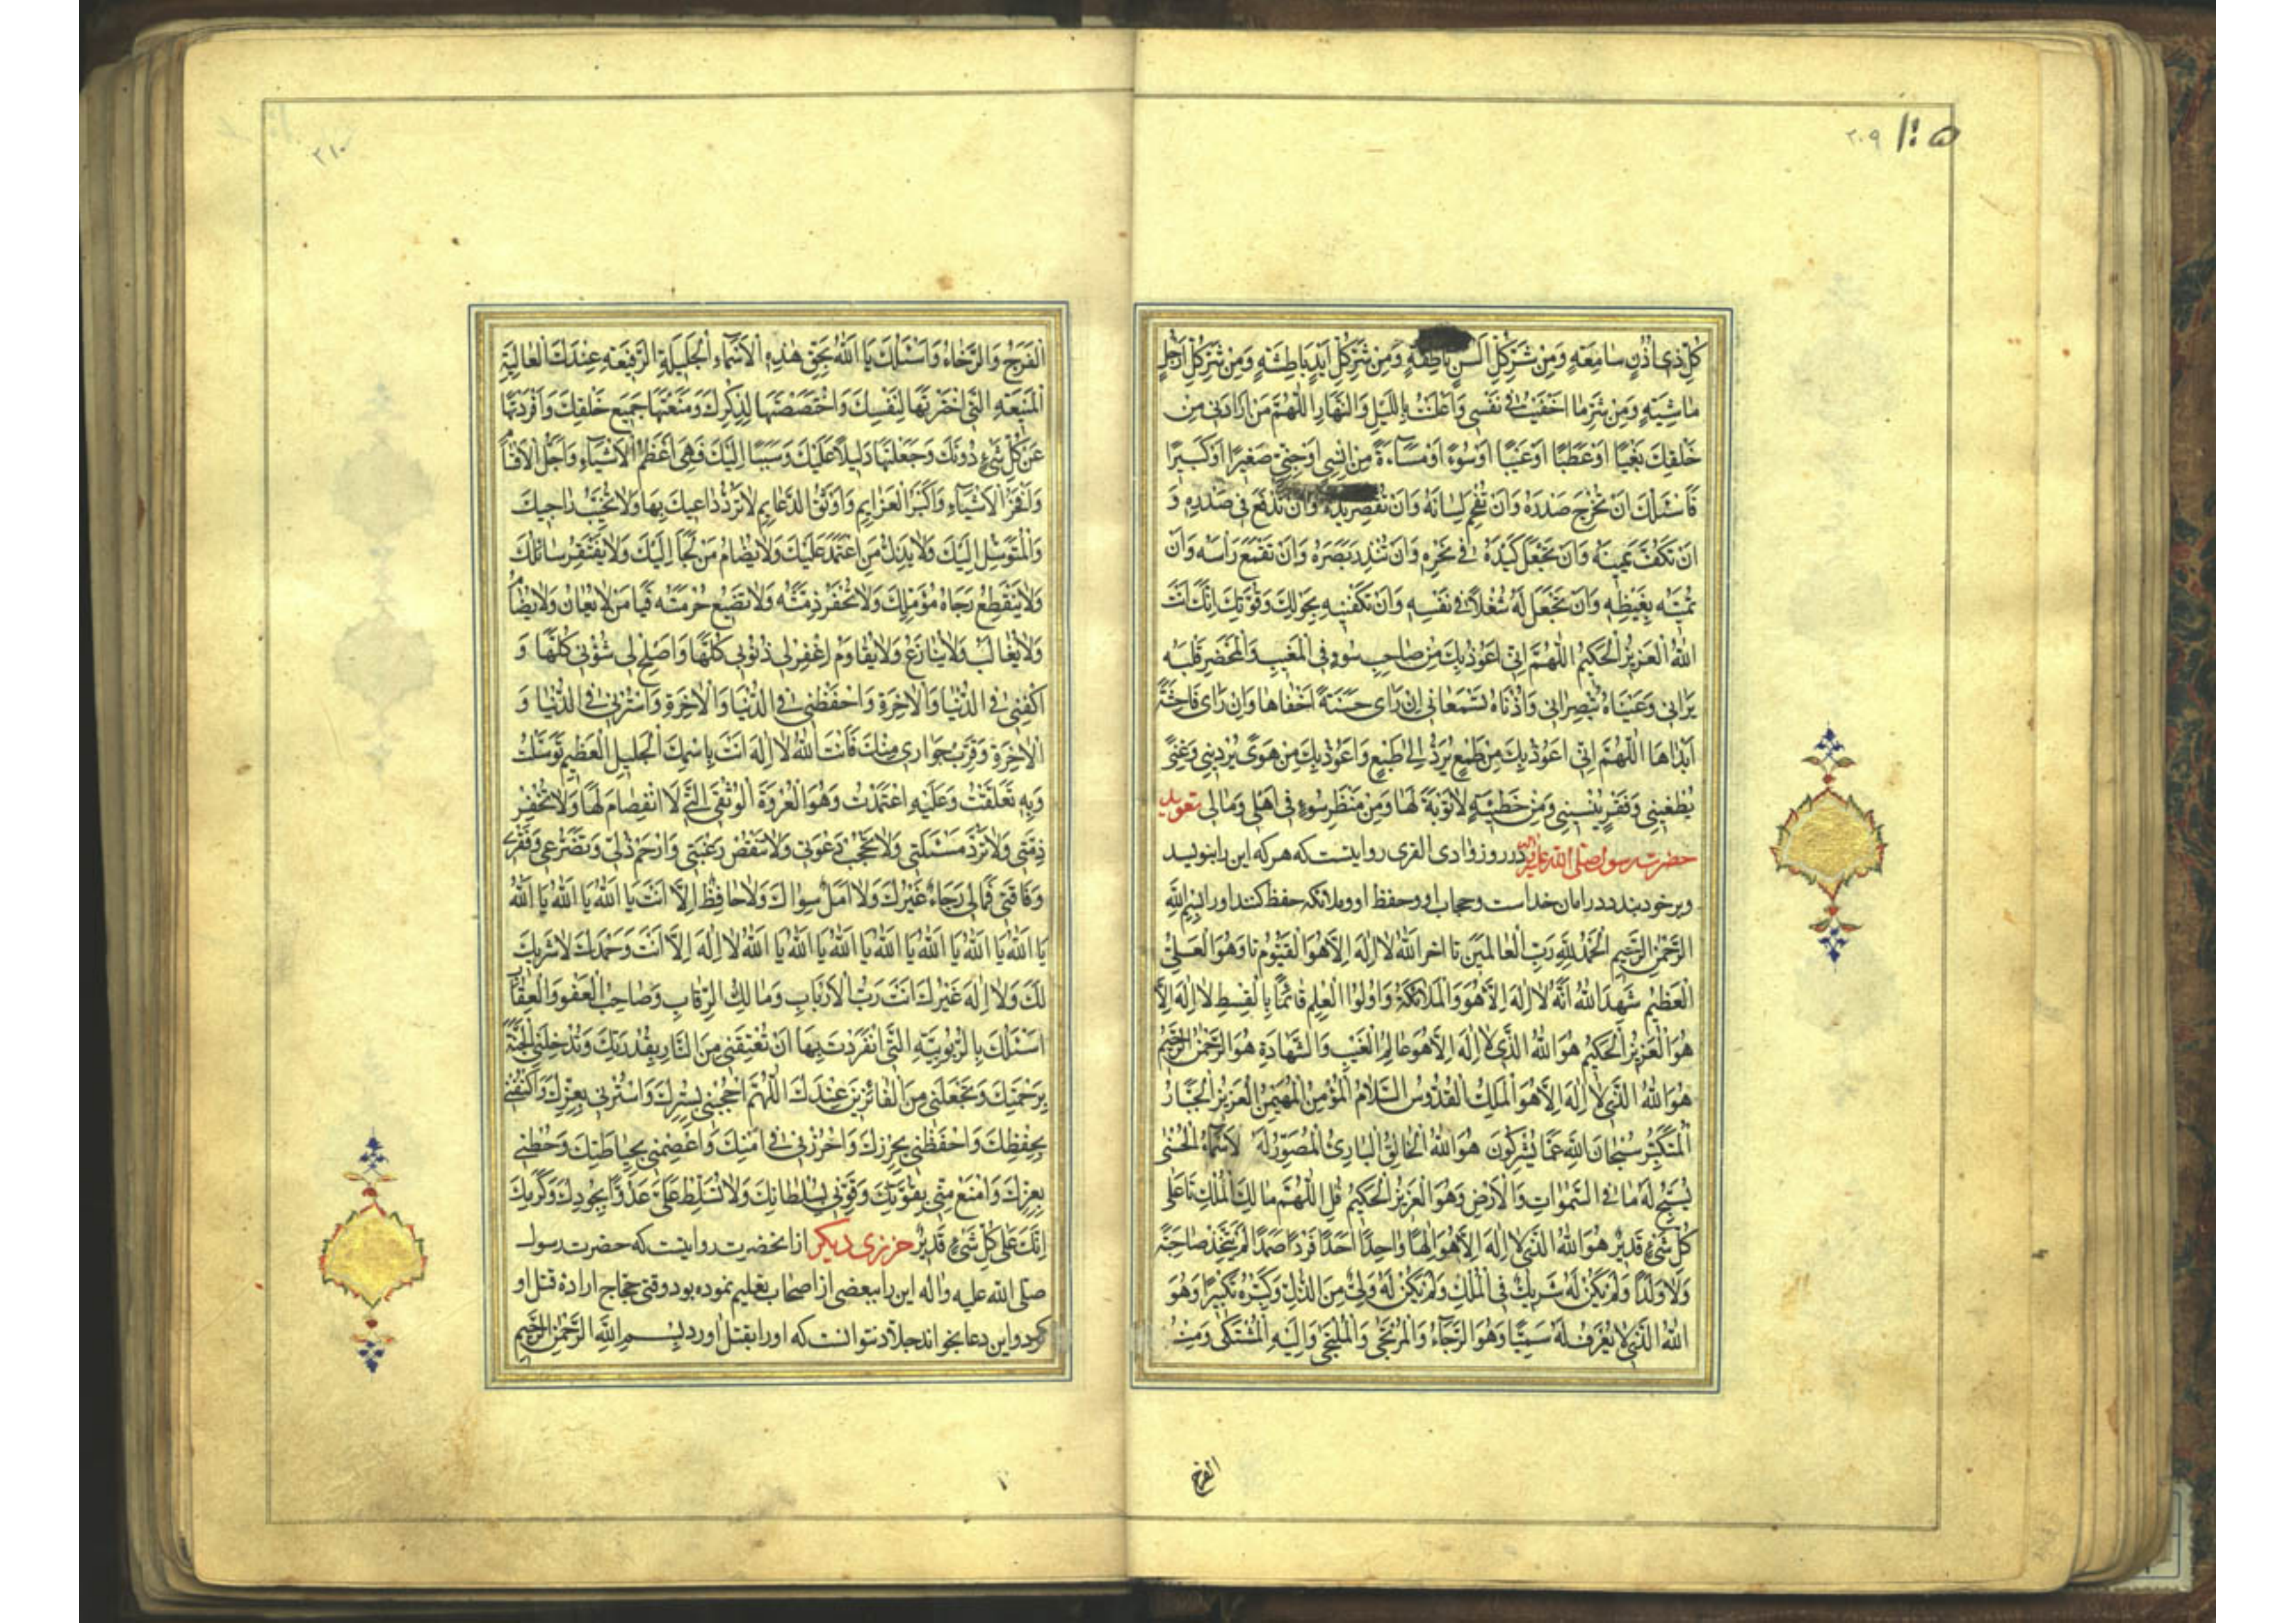 ٢٠٩ ١٠٥
كُلِّ ذِی اُذُنٍ سٰامِعَةٍ وَمِنْ شَرِّ كُلِّ اَلْسُنٍ نٰاطِقَةٍ وَمِنْ شَرِّ كُلِّ اَیْدٍ بٰاطِشَةٍ وَمِنْ شَرِّ كُلِّ اَرْجُلٍ
مٰاشِیَةٍ وَمِنْ شَرِّ مٰا اَخْفَیْتُ فِی نَفْسِی وَاَعْلَنْتُ بِاللَّیْلِ وَالنَّهٰارِ اَللّٰهُمَّ مَنْ اَرٰادَنِی مِنْ
خَلْقِكَ بَغْیًا اَوْ عَطَبًا اَوْ عَیْبًا اَوْ سُوۤءً اَوْ مَسٰاۤءَةً مِنْ اِنْسِیٍّ اَوْ جِنِّیٍّ صَغِیرًا اَوْ كَبِیرًا
فَاَسْئَلُكَ اَنْ تُحْرِجَ صَدْرَهُ وَاَنْ تُفْحِمَ لِسٰانَهُ وَاَنْ تُقَصِّرَ یَدَهُ وَاَنْ تَدْفَعَ فِی صَدْرِهِ وَ
اَنْ تَكُفَّ یَمِینَهُ وَاَنْ تَجْعَلَ كَیْدَهُ فِی نَحْرِهِ وَاَنْ تَنْدُرَ بَصَرَهُ وَاَنْ تَقْمَعَ رَأْسَهُ وَاَنْ
تُمِیتَهُ بِغَیْظِهِ وَاَنْ تَجْعَلَ لَهُ شُغْلًا فِی نَفْسِهِ وَاَنْ تَكْفِنِیهِ بِحَوْلِكَ وَقُوَّتِكَ اِنَّكَ اَنْتَ
اللّٰهُ الْعَزِیزُ الْحَكِیمُ اَللّٰهُمَّ اِنِّی اَعُوذُ بِكَ مِنْ صٰاحِبِ سُوۤءٍ فِی الْمَغِیبِ وَالْمَحْضَرِ قَلْبُهُ
یَرٰانِی وَعَیْنٰاهُ تُبْصِرٰانِی وَاُذُنٰاهُ تَسْمَعٰانِی اِنْ رَاٰی حَسَنَةً اَخْفٰاهٰا وَاِنْ رَاٰی فٰاحِشَةً
اَبْدٰاهٰا اَللّٰهُمَّ اِنِّی اَعُوذُ بِكَ مِنْ طَمَعٍ یَرُدُّ اِلٰی طَبَعٍ وَاَعُوذُ بِكَ مِنْ هَوًی یُرْدِینِی وَغِنًی
یُطْغِینِی وَفَقْرٍ یُنْسِینِی وَمِنْ خَطِیئَةٍ لٰا تَوْبَةَ لَهٰا وَمِنْ مَنْظَرِ سُوۤءٍ فِی اَهْلِی وَمٰالِی تعوید
حضرت رسول صلی الله علیه وآله در روز وادی القری روایتست که هر که این را بنویسد
و بر خود بندد در امان خداست و حجاب او و حفظ او و ملائکه حفظ کنند او را بِسْمِ اللّٰهِ
الرَّحْمٰنِ الرَّحِیمِ اَلْحَمْدُ لِلّٰهِ رَبِّ الْعٰالَمِینَ تا اخر اَللّٰهُ لٰا اِلٰهَ اِلَّا هُوَ الْقَیُّومُ تا وَهُوَ الْعَلِیُّ
الْعَظِیمُ شَهِدَ اللّٰهُ اَنَّهُ لٰا اِلٰهَ اِلَّا هُوَ وَالْمَلٰائِكَةُ وَاُولُوا الْعِلْمِ قٰائِمًا بِالْقِسْطِ لٰا اِلٰهَ اِلَّا
هُوَ الْعَزِیزُ الْحَكِیمُ هُوَ اللّٰهُ الَّذِی لٰا اِلٰهَ اِلَّا هُوَ عٰالِمُ الْغَیْبِ وَالشَّهٰادَةِ هُوَ الرَّحْمٰنُ الرَّحِیمُ
هُوَ اللّٰهُ الَّذِی لٰا اِلٰهَ اِلَّا هُوَ الْمَلِكُ الْقُدُّوسُ السَّلٰامُ الْمُؤْمِنُ الْمُهَیْمِنُ الْعَزِیزُ الْجَبَّارُ
الْمُتَكَبِّرُ سُبْحٰانَ اللّٰهِ عَمَّا یُشْرِكُونَ هُوَ اللّٰهُ الْخٰالِقُ الْبٰارِئُ الْمُصَوِّرُ لَهُ الْاَسْمٰاۤءُ الْحُسْنٰی
یُسَبِّحُ لَهُ مٰا فِی السَّمٰوٰاتِ وَالْاَرْضِ وَهُوَ الْعَزِیزُ الْحَكِیمُ قُلِ اللّٰهُمَّ مٰالِكَ الْمُلْكِ تا عَلٰی
كُلِّ شَیْءٍ قَدِیرٌ هُوَ اللّٰهُ الَّذِی لٰا اِلٰهَ اِلَّا هُوَ اِلٰهًا وٰاحِدًا اَحَدًا فَرْدًا صَمَدًا لَمْ یَتَّخِذْ صٰاحِبَةً
وَلٰا وَلَدًا وَلَمْ یَكُنْ لَهُ شَرِیكٌ فِی الْمُلْكِ وَلَمْ یَكُنْ لَهُ وَلِیٌّ مِنَ الذُّلِّ وَكَبِّرْهُ تَكْبِیرًا وَهُوَ
اللّٰهُ الَّذِی لٰا یُعْرَفُ لَهُ سَمِیًّا وَهُوَ الرَّجٰاۤءُ وَالْمُرْتَجٰی وَالْمُلْتَجٰی وَاِلَیْهِ الْمُشْتَكٰی وَمِنْهُ
الفرج
٢١٠
الْفَرَجُ وَالرَّخٰاۤءُ وَاَسْئَلُكَ یٰا اَللّٰهُ بِحَقِّ هٰذِهِ الْاَسْمٰاۤءِ الْجَلِیلَةِ الرَّفِیعَةِ عِنْدَكَ الْعٰالِیَةِ
الْمَنِیعَةِ الَّتِی اخْتَرْتَهٰا لِنَفْسِكَ وَاخْتَصَصْتَهٰا لِذِكْرِكَ وَمَنَعْتَهٰا جَمِیعَ خَلْقِكَ وَاَفْرَدْتَهٰا
عَنْ كُلِّ شَیْءٍ دُونَكَ وَجَعَلْتَهٰا دَلِیلًا عَلَیْكَ وَسَبَبًا اِلَیْكَ فَهِیَ اَعْظَمُ الْاَشْیٰاۤءِ وَاَجَلُّ الْاَقْسٰامِ
وَاَفْخَرُ الْاَشْیٰاۤءِ وَاَكْبَرُ الْعَزٰایِمِ وَاَوْثَقُ الدَّعٰایِمِ لٰا تَرُدُّ دٰاعِیكَ بِهٰا وَلٰا تُخَیِّبُ رٰاجِیكَ
وَالْمُتَوَسِّلَ اِلَیْكَ وَلٰا یَذِلُّ مَنِ اعْتَمَدَ عَلَیْكَ وَلٰا یُضٰامُ مَنْ لَجَأَ اِلَیْكَ وَلٰا یَفْتَقِرُ سٰائِلُكَ
وَلٰا یَنْقَطِعُ رَجٰاۤءُ مُؤَمِّلِكَ وَلٰا تُخْفَرُ ذِمَّتُهُ وَلٰا تَضِیعُ حُرْمَتُهُ فَیٰا مَنْ لٰا یُعٰانُ وَلٰا یُضٰامُ
وَلٰا یُغٰالَبُ وَلٰا یُنٰازَعُ وَلٰا یُقٰاوَمُ اِغْفِرْ لِی ذُنُوبِی كُلَّهٰا وَاَصْلِحْ لِی شُؤُنِی كُلَّهٰا وَ
اكْفِنِی فِی الدُّنْیٰا وَالْاٰخِرَةِ وَاحْفَظْنِی فِی الدُّنْیٰا وَالْاٰخِرَةِ وَاسْتُرْنِی فِی الدُّنْیٰا وَ
الْاٰخِرَةِ وَقَرِّبْ جِوٰارِی مِنْكَ فَاَنْتَ اللّٰهُ لٰا اِلٰهَ اَنْتَ بِاسْمِكَ الْجَلِیلِ الْعَظِیمِ تَوَسَّلْتُ
وَبِهِ تَعَلَّقْتُ وَعَلَیْهِ اعْتَمَدْتُ وَهُوَ الْعُرْوَةُ الْوُثْقٰی الَّتِی لَا انْفِصٰامَ لَهٰا وَلٰا تُخْفِرْ
ذِمَّتِی وَلٰا تَرُدَّ مَسْئَلَتِی وَلٰا تَحْجُبْ دَعْوَتِی وَلٰا تَنْقُصْ رَغْبَتِی وَارْحَمْ ذُلِّی وَتَضَرُّعِی وَفَقْرِی
وَفٰاقَتِی فَمٰا لِی رَجٰاۤءٌ غَیْرُكَ وَلٰا اَمَلٌ سِوٰاكَ وَلٰا حٰافِظٌ اِلَّا اَنْتَ یٰا اَللّٰهُ یٰا اَللّٰهُ یٰا اَللّٰهُ
یٰا اَللّٰهُ یٰا اَللّٰهُ یٰا اَللّٰهُ یٰا اَللّٰهُ یٰا اَللّٰهُ یٰا اَللّٰهُ یٰا اَللّٰهُ لٰا اِلٰهَ اِلَّا اَنْتَ وَحْدَكَ لٰا شَرِیكَ
لَكَ وَلٰا اِلٰهَ غَیْرُكَ اَنْتَ رَبُّ الْاَرْبٰابِ وَمٰالِكُ الرِّقٰابِ وَصٰاحِبُ الْعَفْوِ وَالْعِقٰابِ
اَسْئَلُكَ بِالرُّبُوبِیَّةِ الَّتِی انْفَرَدْتَ بِهٰا اَنْ تُعْتِقَنِی مِنَ النّٰارِ بِقُدْرَتِكَ وَتُدْخِلَنِی الْجَنَّةَ
بِرَحْمَتِكَ وَتَجْعَلَنِی مِنَ الْفٰائِزِینَ عِنْدَكَ اَللّٰهُمَّ احْجُبْنِی بِسِتْرِكَ وَاسْتُرْنِی بِعِزِّكَ وَاكْنُفْنِی
بِحِفْظِكَ وَاحْفَظْنِی بِحِرْزِكَ وَاحْرُزْنِی فِی اَمْنِكَ وَاعْصِمْنِی بِحِیٰاطَتِكَ وَحُطْنِی
بِعِزِّكَ وَامْنَعْ مِنِّی بِقُوَّتِكَ وَقَوِّنِی بِسُلْطٰانِكَ وَلٰا تُسَلِّطْ عَلَیَّ عَدُوًّا بِجُودِكَ وَكَرَمِكَ
اِنَّكَ عَلٰی كُلِّ شَیْءٍ قَدِیرٌ حرزی دیکر از انحضرت روایتست که حضرت رسول
صلی الله علیه واله این را ببعضی از اصحاب تعلیم نموده بود وقتی حجاج اراده قتل او
کرد و این دعا بخواند جلاد نتوانست که او را بقتل اورد بِسْمِ اللّٰهِ الرَّحْمٰنِ الرَّحِیمِ